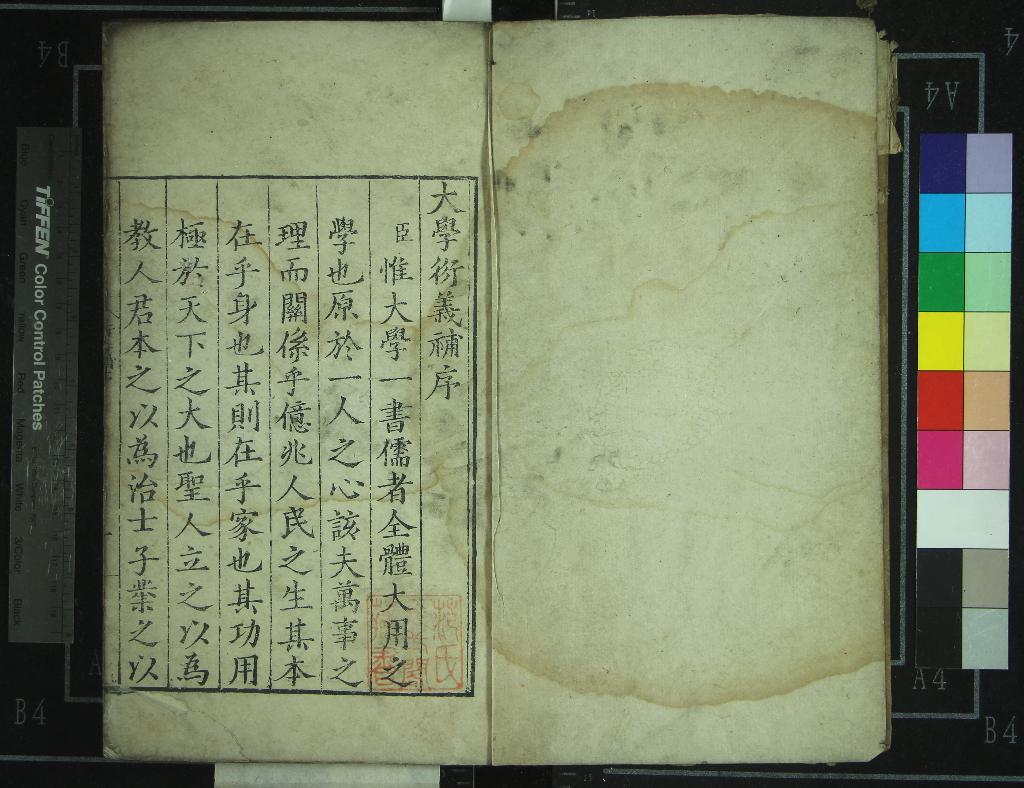 大學衍義補序
臣惟大學一書儒者全體大用之
學也原於一人之心該夫萬事之
理而關係乎億兆人民之生其本
在乎身也其則在乎家也其功用
極於天下之大也聖人立之以為
教人君本之以為治士子業之以
TIFFEN Color Control Patches
Blue
Cyan
Green
Yellow
Red
Magenta
White
3/Color
Black
B4
A4
A4
B4
A4
B4